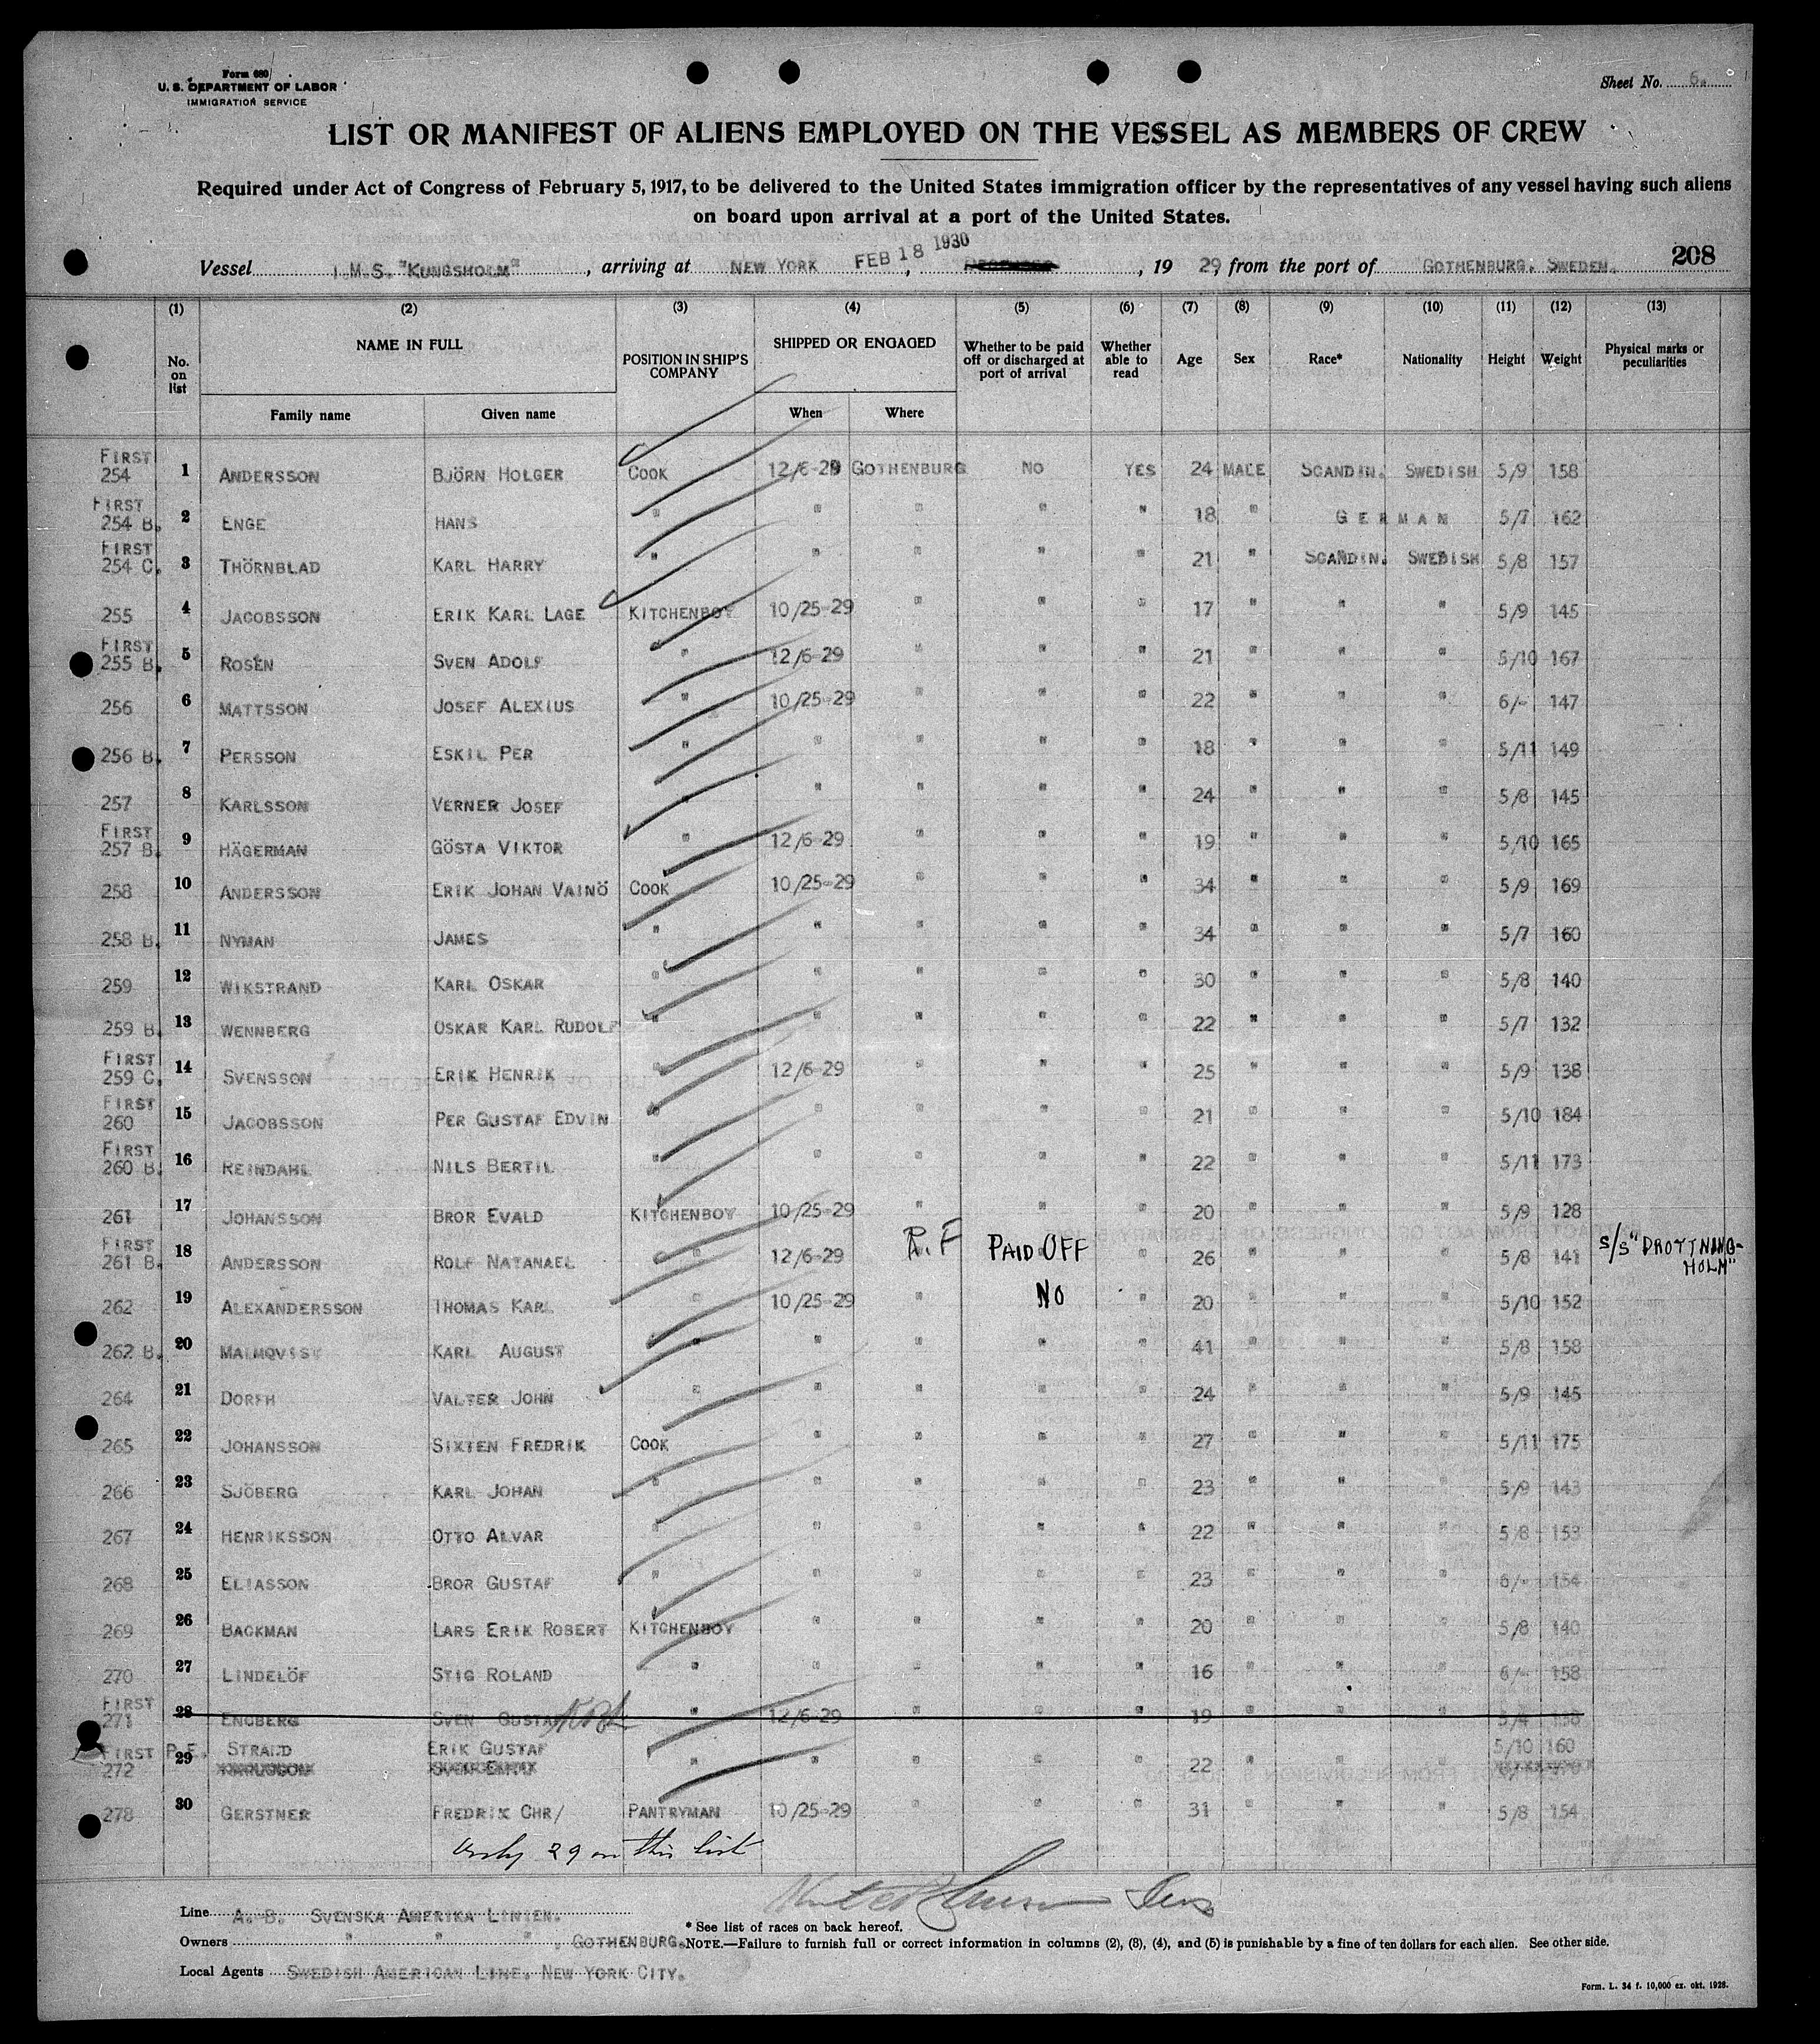 Form 680
U. S. DEPARTMENT OF LABOR
IMMIGRATION SERVICE
Sheet No. 6.
LIST OR MANIFEST OF ALIENS EMPLOYED ON THE VESSEL AS MEMBERS OF CREW
Required under Act of Congress of February 5, 1917, to be delivered to the United States immigration officer by the representatives of any vessel having such aliens
on board upon arrival at a port of the United States.
Vessel M.S. "KUNGSHOLM", arriving at NEW YORK FEB 18 1930, 19 29, from the port of GOTHENBURG, SWEDEN. 208
(1) (2) (3) (4) (5) (6) (7) (8) (9) (10) (11) (12) (13)
No. on list NAME IN FULL Family name Given name POSITION IN SHIP'S COMPANY SHIPPED OR ENGAGED When Where Whether to be paid off or discharged at port of arrival Whether able to read Age Sex Race* Nationality Height Weight Physical marks or peculiarities
FIRST 254 1 ANDERSSON BJÖRN HOLGER COOK 12/6-29 GOTHENBURG NO YES 24 MALE SCANDIN. SWEDISH 5/9 158
FIRST 254 B. 2 ENGE HANS " " " " " 18 " GERMAN 5/7 162
FIRST 254 C. 3 THÖRNBLAD KARL HARRY " " " " " 21 " SCANDIN. SWEDISH 5/8 157
255 4 JACOBSSON ERIK KARL LAGE KITCHENBOY 10/25-29 " " " 17 " " " 5/9 145
FIRST 255 B. 5 ROSÉN SVEN ADOLF " 12/6-29 " " " 21 " " " 5/10 167
256 6 MATTSSON JOSEF ALEXIUS " 10/25-29 " " " 22 " " " 6/- 147
256 B. 7 PERSSON ESKIL PER " " " " " 18 " " " 5/11 149
257 8 KARLSSON VERNER JOSEF " " " " " 24 " " " 5/8 145
FIRST 257 B. 9 HÄGERMAN GÖSTA VIKTOR " 12/6-29 " " " 19 " " " 5/10 165
258 10 ANDERSSON ERIK JOHAN VAINÖ COOK 10/25-29 " " " 34 " " " 5/9 169
258 B. 11 NYMAN JAMES " " " " " 34 " " " 5/7 160
259 12 WIKSTRAND KARL OSKAR " " " " " 30 " " " 5/8 140
259 B. 13 WENNBERG OSKAR KARL RUDOLF " " " " " 22 " " " 5/7 132
FIRST 259 C. 14 SVENSSON ERIK HENRIK " 12/6-29 " " " 25 " " " 5/9 138
FIRST 260 15 JACOBSSON PER GUSTAF EDVIN " " " " " 21 " " " 5/10 184
FIRST 260 B. 16 REINDAHL NILS BERTIL " " " " " 22 " " " 5/11 173
261 17 JOHANSSON BROR EVALD KITCHENBOY 10/25-29 " " " 20 " " " 5/9 128
FIRST 261 B. 18 ANDERSSON ROLF NATANAEL " 12/6-29 R.F PAID OFF " 26 " " " 5/8 141 S/S "DROTTNING-
HOLM"
262 19 ALEXANDERSSON THOMAS KARL " 10/25-29 " NO " 20 " " " 5/10 152
262 B. 20 MALMQVIST KARL AUGUST " " " " " 41 " " " 5/8 158
264 21 DORFH VALTER JOHN " " " " " 24 " " " 5/9 145
265 22 JOHANSSON SIXTEN FREDRIK COOK " " " " 27 " " " 5/11 175
266 23 SJÖBERG KARL JOHAN " " " " " 23 " " " 5/9 143
267 24 HENRIKSSON OTTO ALVAR " " " " " 22 " " " 5/8 153
268 25 ELIASSON BROR GUSTAF " " " " " 23 " " " 6/- 154
269 26 BACKMAN LARS ERIK ROBERT KITCHENBOY " " " " 20 " " " 5/8 140
270 27 LINDELÖF STIG ROLAND " " " " " 16 " " " 6/- 158
FIRST 271 28 ENGBERG SVEN GUSTAF " 12/6-29 " " " 19 " " " 5/4
FIRST 272 29 STRAND ERIK GUSTAF " " " " " 22 " " " 5/10 160
278 30 GERSTNER FREDRIK CHR/ PANTRYMAN 10/25-29 " " " 31 " " " 5/8 154
Only 29 on this list
Line A. B. SVENSKA AMERIKA LINIEN.
* See list of races on back hereof.
Owners " " " , GOTHENBURG.
NOTE.—Failure to furnish full or correct information in columns (2), (3), (4), and (5) is punishable by a fine of ten dollars for each alien. See other side.
Local Agents SWEDISH AMERICAN LINE, NEW YORK CITY.
Form. L. 34 f. 10,000 ex. okt. 1928.